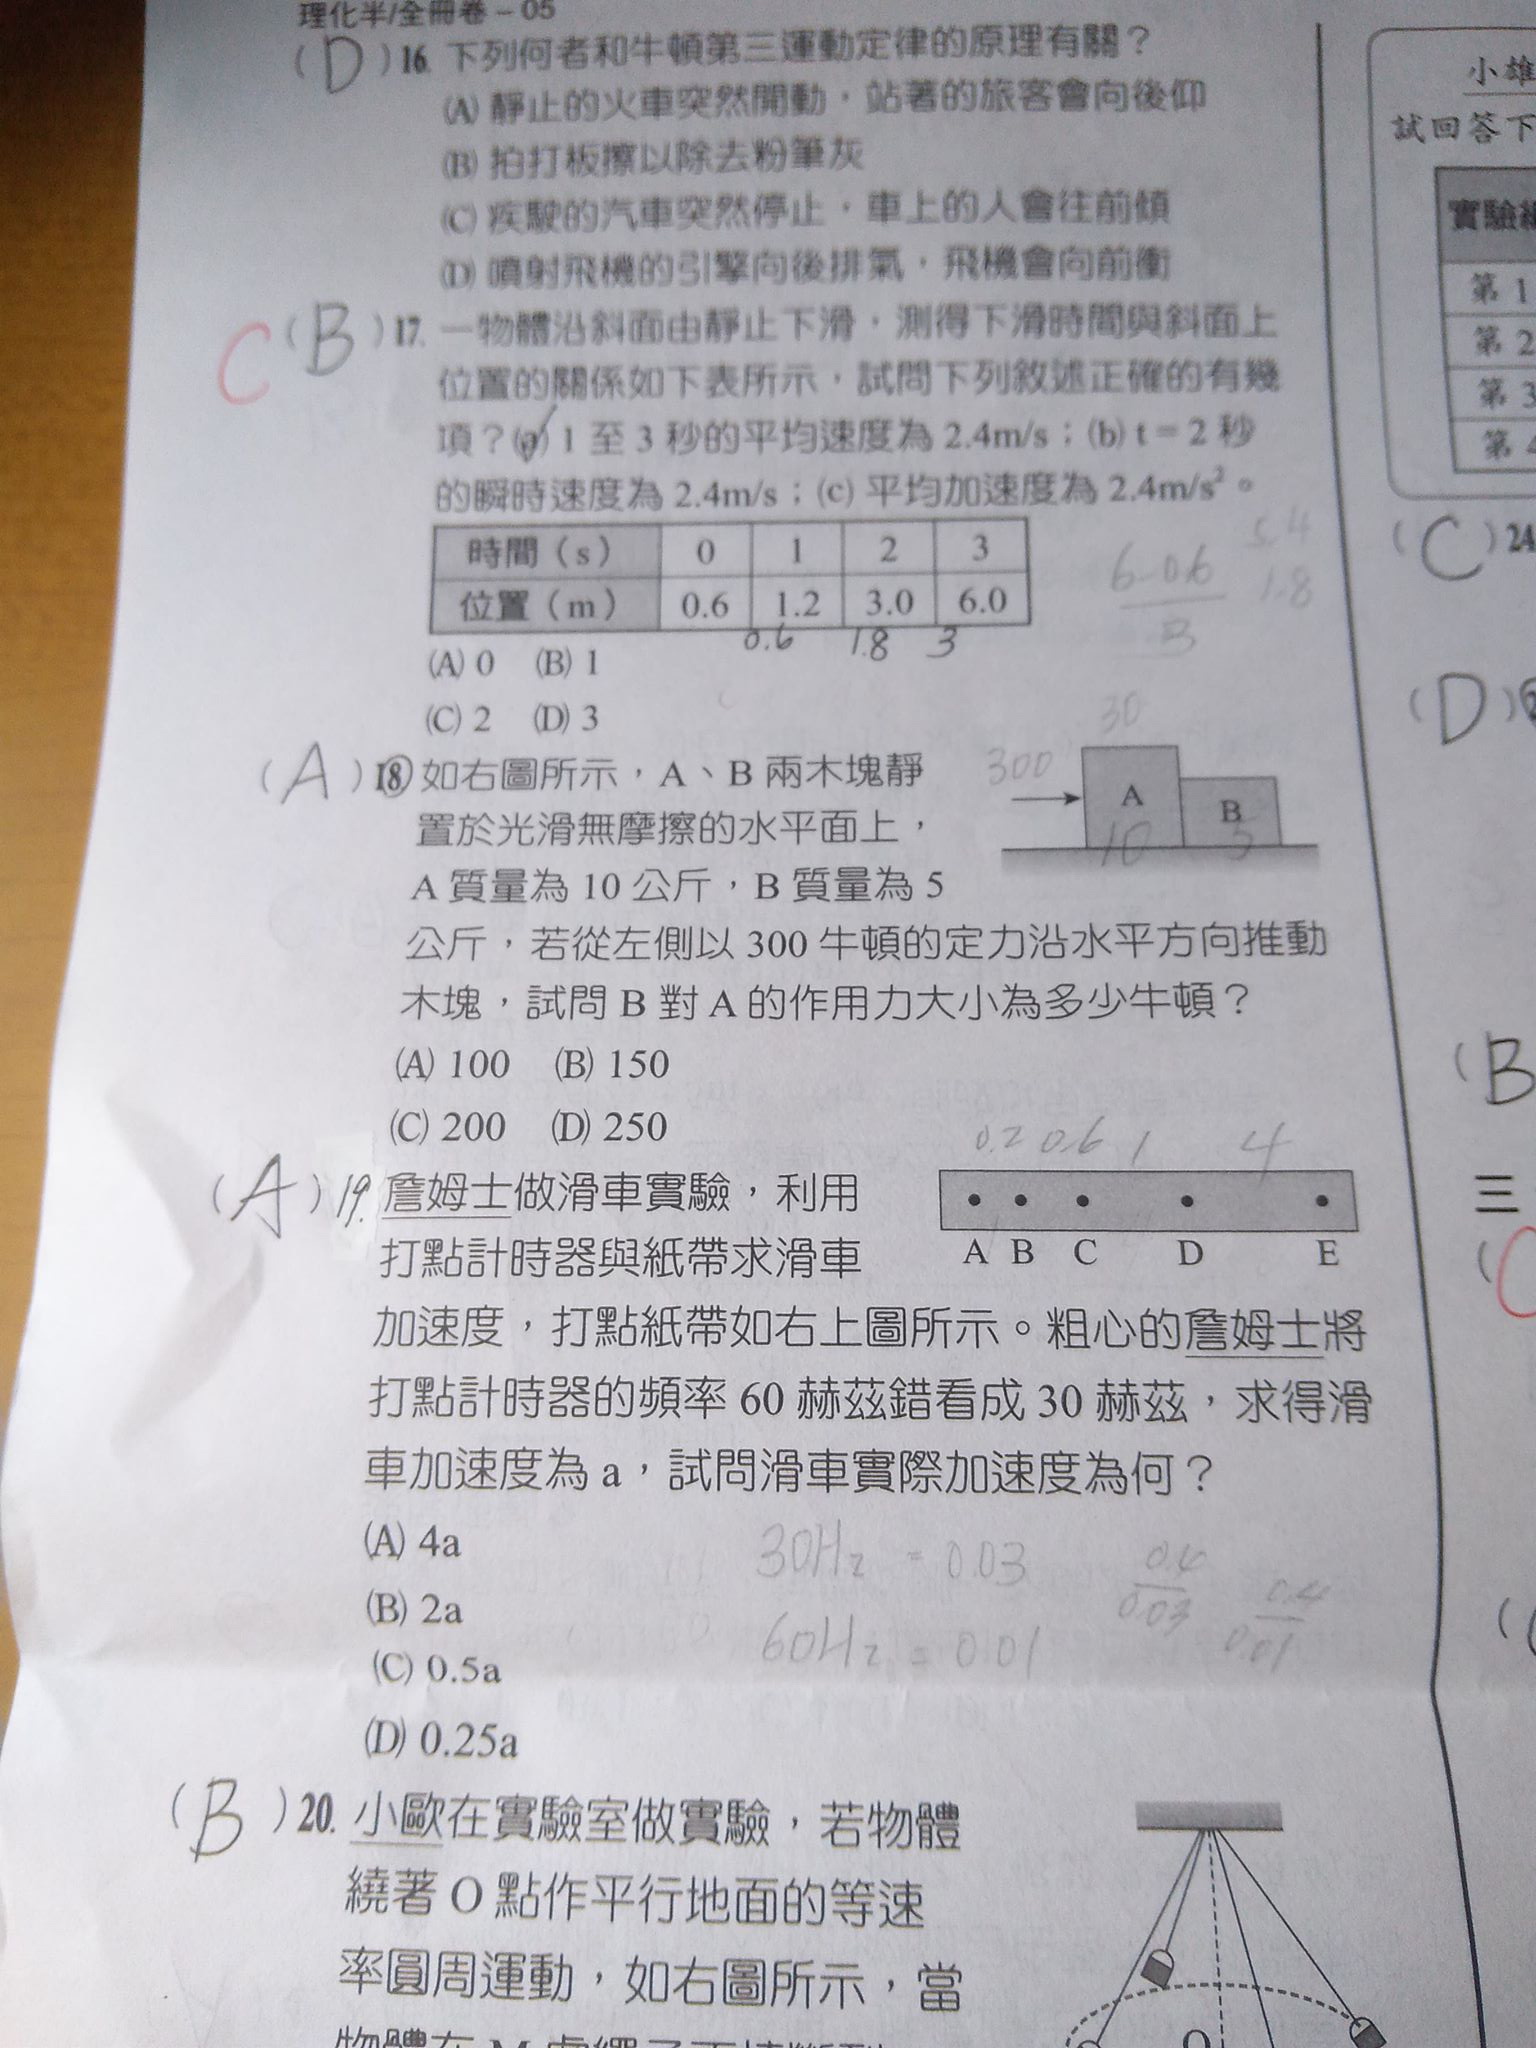 理化半/全冊卷－05
(D)16. 下列何者和牛頓第三運動定律的原理有關？
(A) 靜止的火車突然開動，站著的旅客會向後仰
(B) 拍打板擦以除去粉筆灰
(C) 疾駛的汽車突然停止，車上的人會往前傾
(D) 噴射飛機的引擎向後排氣，飛機會向前衝
C (B)17. 一物體沿斜面由靜止下滑，測得下滑時間與斜面上
位置的關係如下表所示，試問下列敘述正確的有幾
項？(a) 1 至 3 秒的平均速度為 2.4m/s；(b) t＝2 秒
的瞬時速度為 2.4m/s；(c) 平均加速度為 2.4m/s²。
時間（s） 0 1 2 3
位置（m） 0.6 1.2 3.0 6.0
0.6 1.8 3
6-0.6
3
5.4
1.8
(A) 0 (B) 1
(C) 2 (D) 3
(A)18. 如右圖所示，A、B 兩木塊靜
置於光滑無摩擦的水平面上，
A 質量為 10 公斤，B 質量為 5
公斤，若從左側以 300 牛頓的定力沿水平方向推動
木塊，試問 B 對 A 的作用力大小為多少牛頓？
30
300
A B
10 5
(A) 100 (B) 150
(C) 200 (D) 250
(A)19. 詹姆士做滑車實驗，利用
打點計時器與紙帶求滑車
加速度，打點紙帶如右上圖所示。粗心的詹姆士將
打點計時器的頻率 60 赫茲錯看成 30 赫茲，求得滑
車加速度為 a，試問滑車實際加速度為何？
0.2 0.6 1 4
A B C D E
(A) 4a
(B) 2a
(C) 0.5a
(D) 0.25a
30Hz = 0.03
60Hz = 0.01
0.4
0.03
0.4
0.01
(B)20. 小歐在實驗室做實驗，若物體
繞著 O 點作平行地面的等速
率圓周運動，如右圖所示，當
O
小雄
試回答下
實驗組
第 1
第 2
第 3
第 4
(C)24
(D)
(B
三